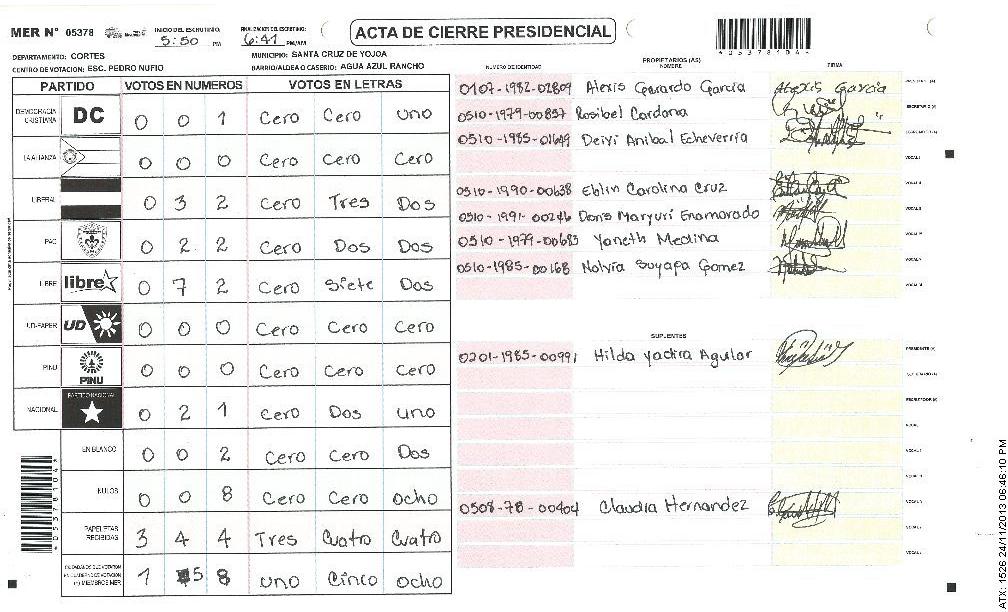 MER Nº 05378
INICIO DEL ESCRUTINIO: 5:50 PM
FINALIZACION DEL ESCRUTINIO: 6:41 PM/AM
ACTA DE CIERRE PRESIDENCIAL
*05378104*
DEPARTAMENTO: CORTES
MUNICIPIO: SANTA CRUZ DE YOJOA
CENTRO DE VOTACION: ESC. PEDRO NUFIO
BARRIO/ALDEA O CASERIO: AGUA AZUL RANCHO
PARTIDO VOTOS EN NUMEROS VOTOS EN LETRAS
DEMOCRACIA CRISTIANA DC 0 0 1 Cero Cero uno
LA ALIANZA 0 0 0 Cero Cero Cero
LIBERAL 0 3 2 Cero Tres Dos
PAC 0 2 2 Cero Dos Dos
LIBRE libre 0 7 2 Cero Siete Dos
UD-FAPER UD 0 0 0 Cero Cero Cero
PINU PINU 0 0 0 Cero Cero Cero
NACIONAL PARTIDO NACIONAL 0 2 1 Cero Dos uno
EN BLANCO 0 0 2 Cero Cero Dos
NULOS 0 0 8 Cero Cero ocho
PAPELETAS RECIBIDAS 3 4 4 Tres Cuatro Cuatro
CIUDADANOS QUE VOTARON EN CUADERNO DE VOTACION (+) MIEMBROS MER 1 5 8 uno Cinco ocho
*05378104*
PROPIETARIOS (AS)
NUMERO DE IDENTIDAD NOMBRE FIRMA
0107-1982-02809 Alexis Gerardo Garcia Alexis Garcia PRESIDENTE (A)
0510-1979-00857 Rosibel Cardona SECRETARIO (A)
0510-1985-01649 Deivi Anibal Echeverria ESCRUTADOR (A)
VOCAL I
0510-1990-00638 Eblin Carolina Cruz
0510-1991-00246 Doris Maryuri Enamorado
0510-1979-00683 Yaneth Medina
0510-1985-00168 Nolvia Suyapa Gomez
SUPLENTES
0201-1985-00991 Hilda yadira Aguilar PRESIDENTE (A)
SECRETARIO (A)
ESCRUTADOR (A)
0508-78-00404 Claudia Hernandez
ATX: 1526 24/11/2013 06:46:10 PM